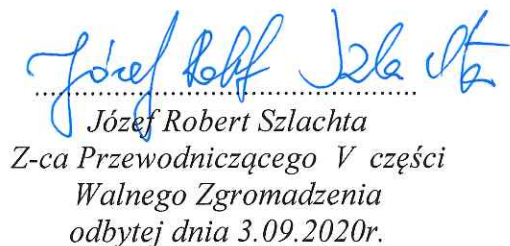 Józef Robert Szlachta
Józef Robert Szlachta
Z-ca Przewodniczącego V części
Walnego Zgromadzenia
odbytej dnia 3.09.2020r.